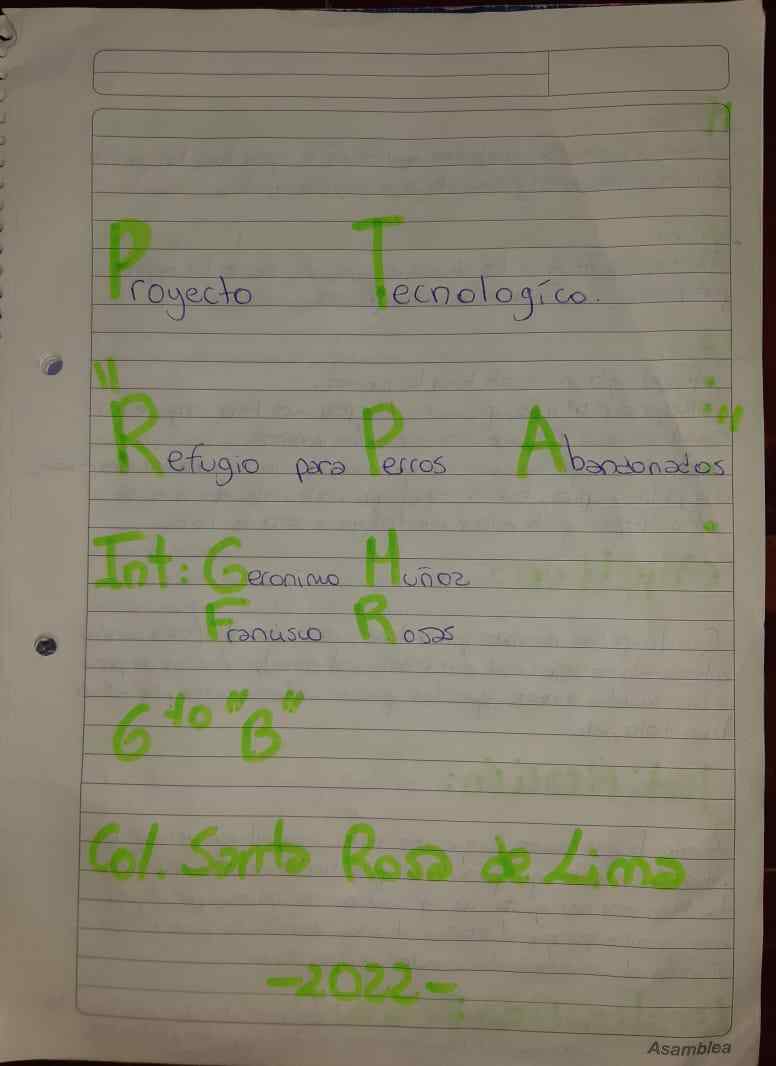 Proyecto Tecnologíco.
"Refugio para Perros Abandonados"
Int: Geronimo Muñoz
Francisco Rosas
6to "B"
Col. Santa Rosa de Lima
-2022-
Asamblea